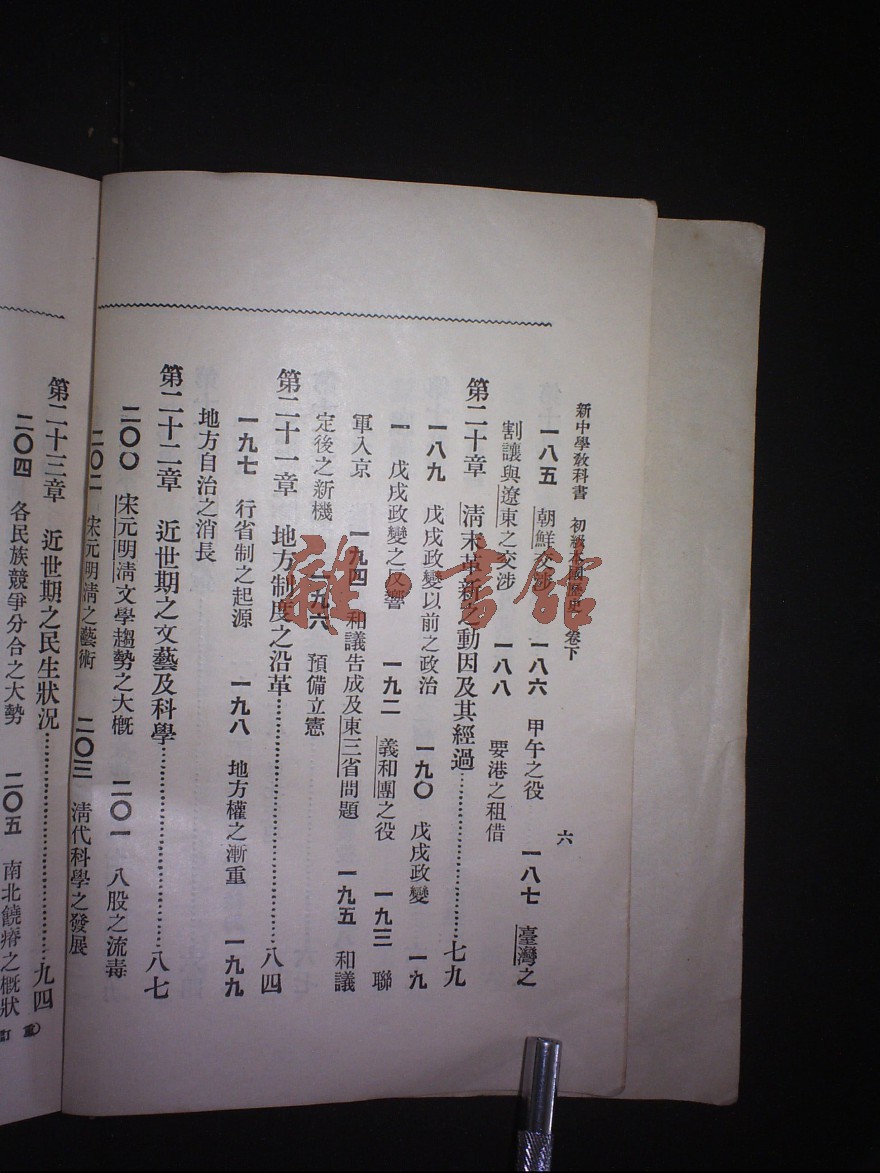 新中學教科書 初級本國歷史 卷下 六
一八五 朝鮮交涉 一八六 甲午之役 一八七 臺灣之
割讓與遼東之交涉 一八八 要港之租借
第二十章 淸末革新之動因及其經過……………七九
一八九 戊戌政變以前之政治 一九〇 戊戌政變 一九
一 戊戌政變之反響 一九二 義和團之役 一九三 聯
軍入京 一九四 和議吿成及東三省問題 一九五 和議
定後之新機 一九六 預備立憲
第二十一章 地方制度之沿革……………八四
一九七 行省制之起源 一九八 地方權之漸重 一九九
地方自治之消長
第二十二章 近世期之文藝及科學……………八七
二〇〇 宋元明淸文學趨勢之大槪 二〇一 八股之流毒
二〇二 宋元明淸之藝術 二〇三 淸代科學之發展
第二十三章 近世期之民生狀況……………九四
二〇四 各民族競爭分合之大勢 二〇五 南北饒瘠之槪狀
雜·書館